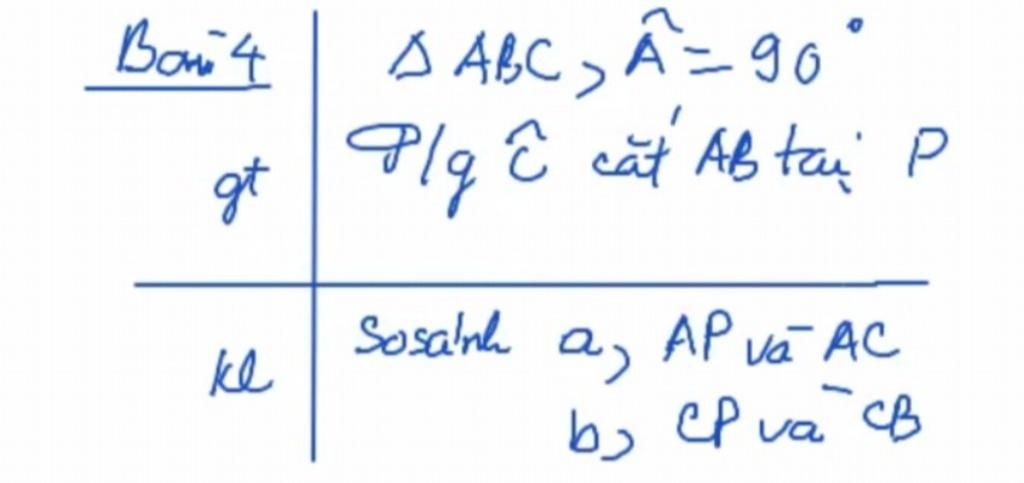 Bài 4
Δ ABC, Â = 90°
gt
P/g Ĉ cắt AB tại P
kl
So sánh a, AP và AC
b, CP và CB